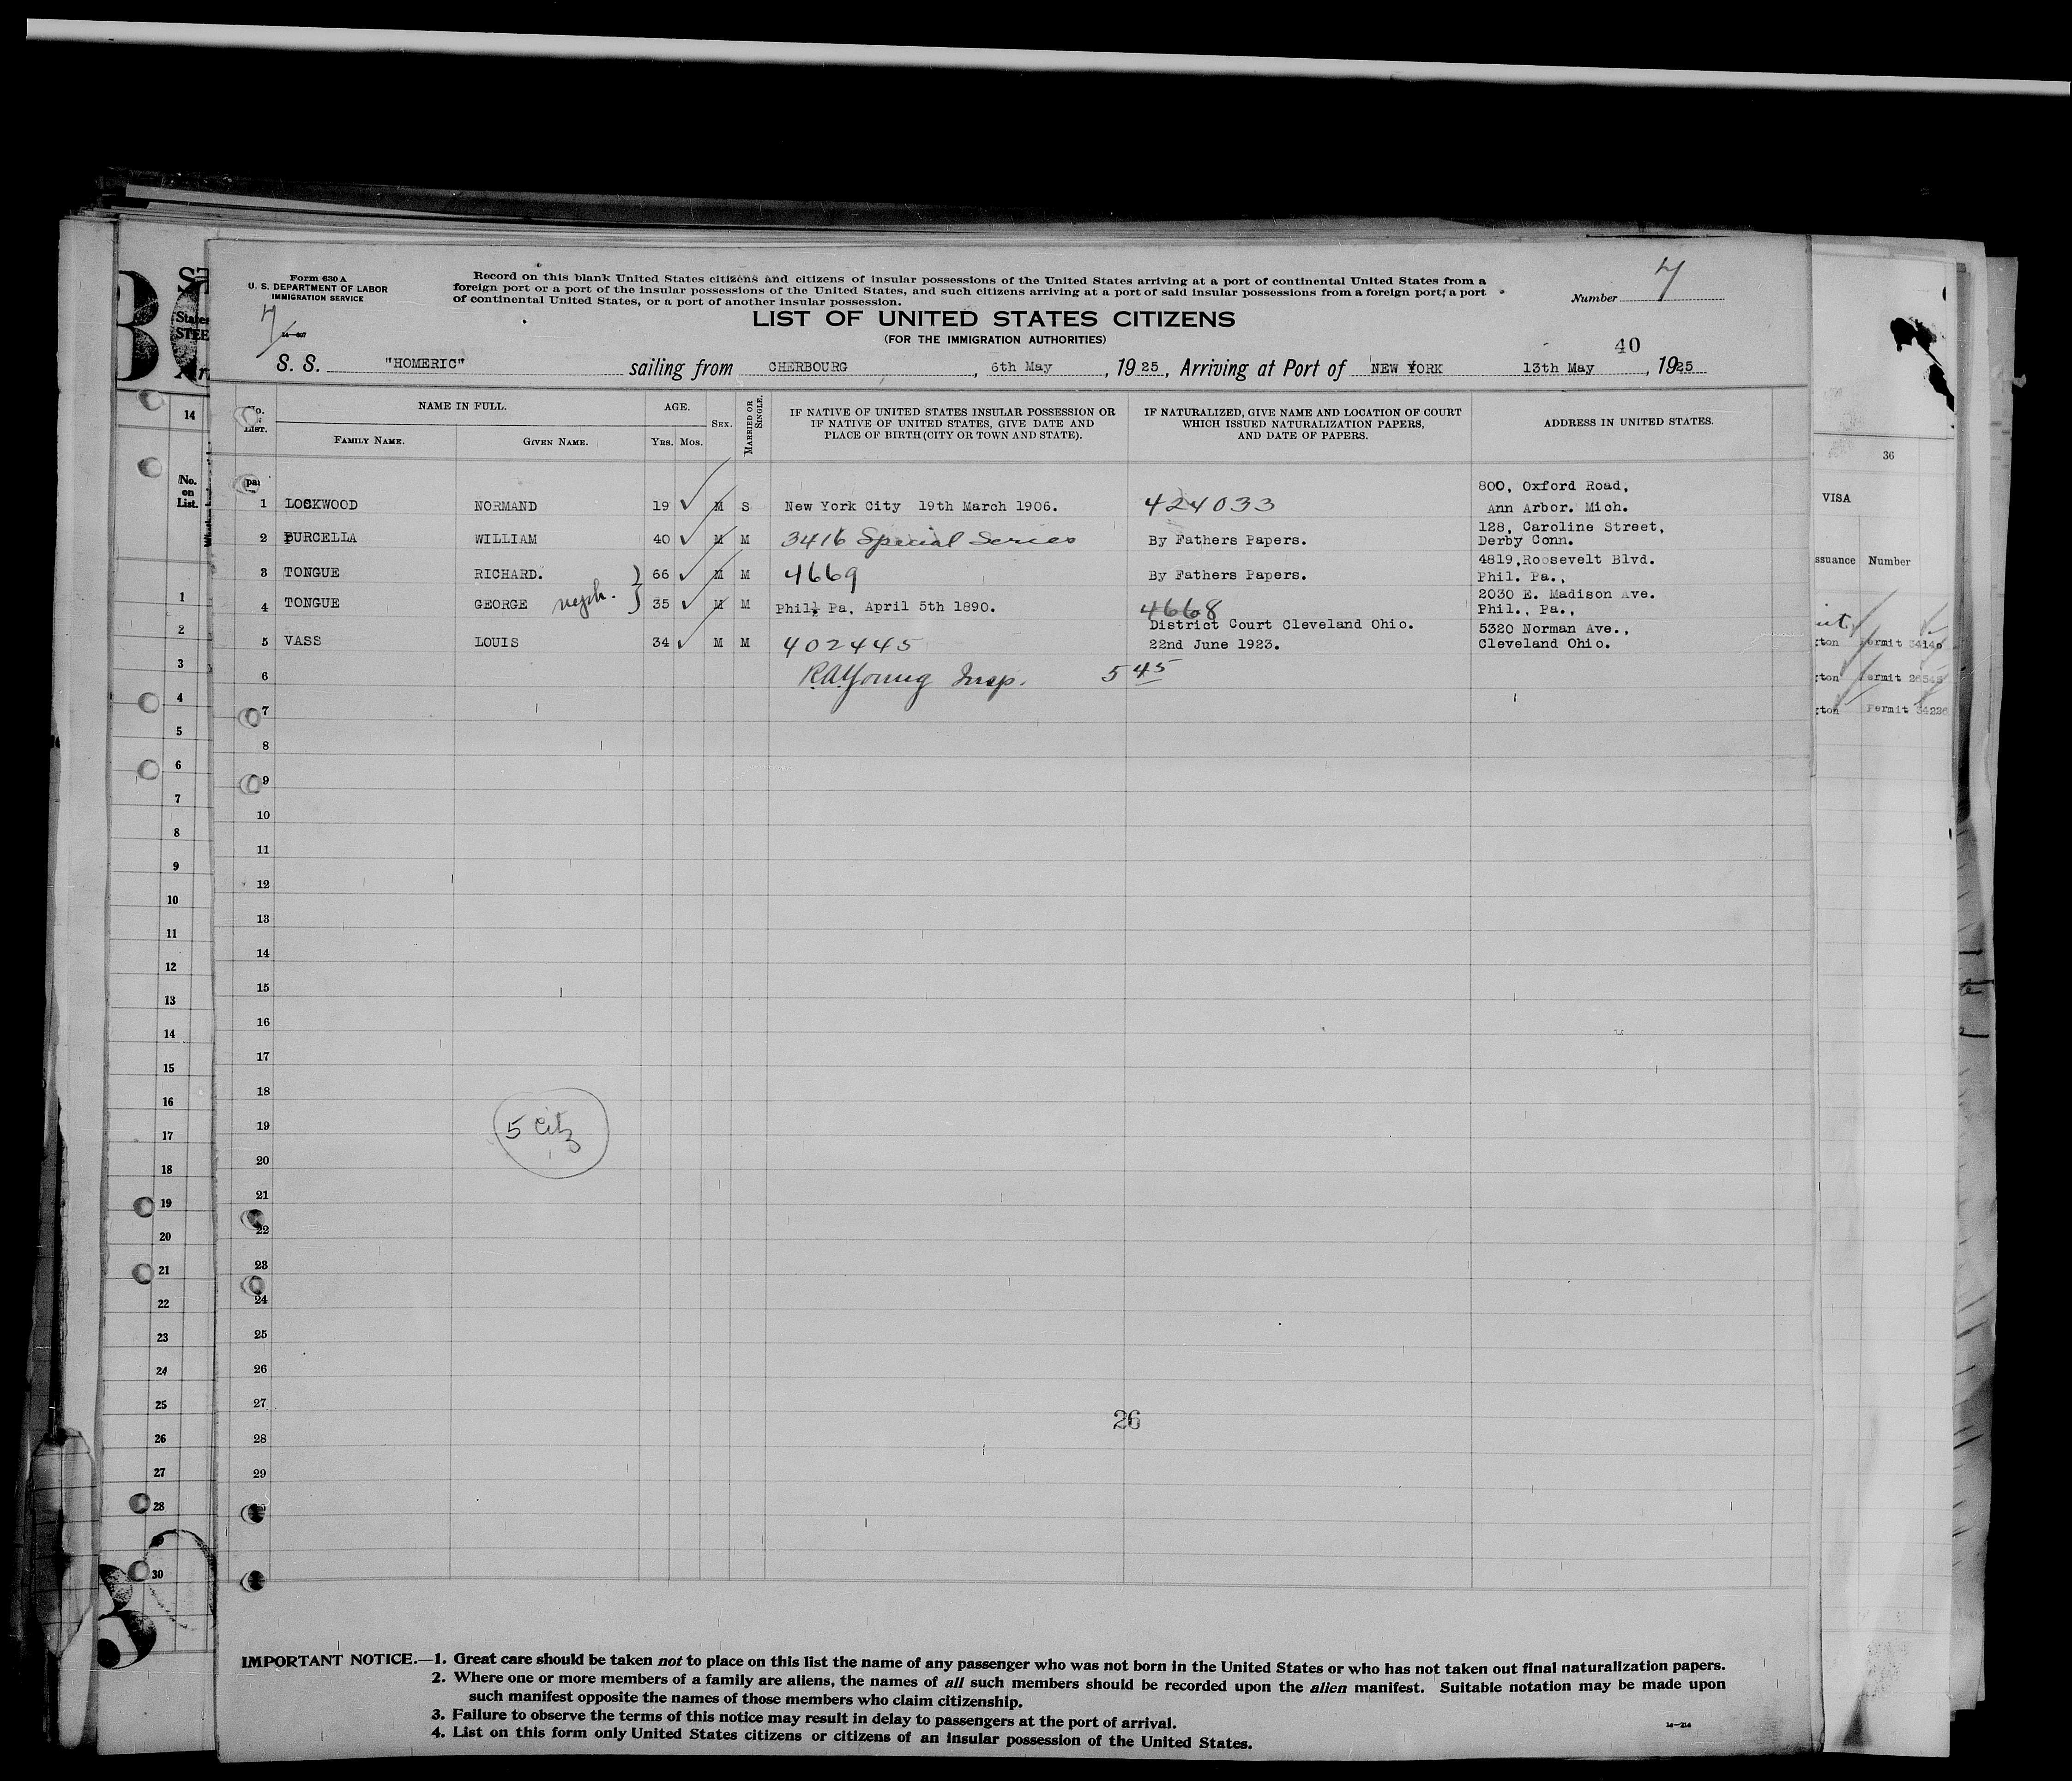 Form 630 A
U. S. DEPARTMENT OF LABOR
IMMIGRATION SERVICE
Record on this blank United States citizens and citizens of insular possessions of the United States arriving at a port of continental United States from a
foreign port or a port of the insular possessions of the United States, and such citizens arriving at a port of said insular possessions from a foreign port, a port
of continental United States, or a port of another insular possession.
Number 4
LIST OF UNITED STATES CITIZENS
(FOR THE IMMIGRATION AUTHORITIES)
40
S. S. "HOMERIC" sailing from CHERBOURG, 6th May, 1925, Arriving at Port of NEW YORK 13th May, 1925
No. LIST. NAME IN FULL. AGE. SEX. MARRIED OR SINGLE. IF NATIVE OF UNITED STATES INSULAR POSSESSION OR IF NATIVE OF UNITED STATES, GIVE DATE AND PLACE OF BIRTH (CITY OR TOWN AND STATE). IF NATURALIZED, GIVE NAME AND LOCATION OF COURT WHICH ISSUED NATURALIZATION PAPERS, AND DATE OF PAPERS. ADDRESS IN UNITED STATES.
FAMILY NAME. GIVEN NAME. YRS. MOS.
800, Oxford Road,
1 LOCKWOOD NORMAND 19 M S New York City 19th March 1906. 424033 Ann Arbor. Mich.
128, Caroline Street,
2 PURCELLA WILLIAM 40 M M 3416 Special Series By Fathers Papers. Derby Conn.
4819,Roosevelt Blvd.
3 TONGUE RICHARD. 66 M M 4669 By Fathers Papers. Phil. Pa.,
2030 E. Madison Ave.
4 TONGUE GEORGE 35 M M Phil, Pa, April 5th 1890. 4668 Phil., Pa.,
District Court Cleveland Ohio. 5320 Norman Ave.,
5 VASS LOUIS 34 M M 402445 22nd June 1923. Cleveland Ohio.
6 R.A.Young Insp. 5 45
7
8
9
10
11
12
13
14
15
16
17
18
19 5 Citz
20
21
22
23
24
25
26
27
26
28
29
IMPORTANT NOTICE.—1. Great care should be taken not to place on this list the name of any passenger who was not born in the United States or who has not taken out final naturalization papers.
2. Where one or more members of a family are aliens, the names of all such members should be recorded upon the alien manifest. Suitable notation may be made upon
such manifest opposite the names of those members who claim citizenship.
3. Failure to observe the terms of this notice may result in delay to passengers at the port of arrival.
4. List on this form only United States citizens or citizens of an insular possession of the United States.
14—214
14
No.
on
List.
1
2
3
4
5
6
7
8
9
10
11
12
13
14
15
16
17
18
19
20
21
22
23
24
25
26
27
28
30
36
VISA
Number
Permit
Permit
Permit